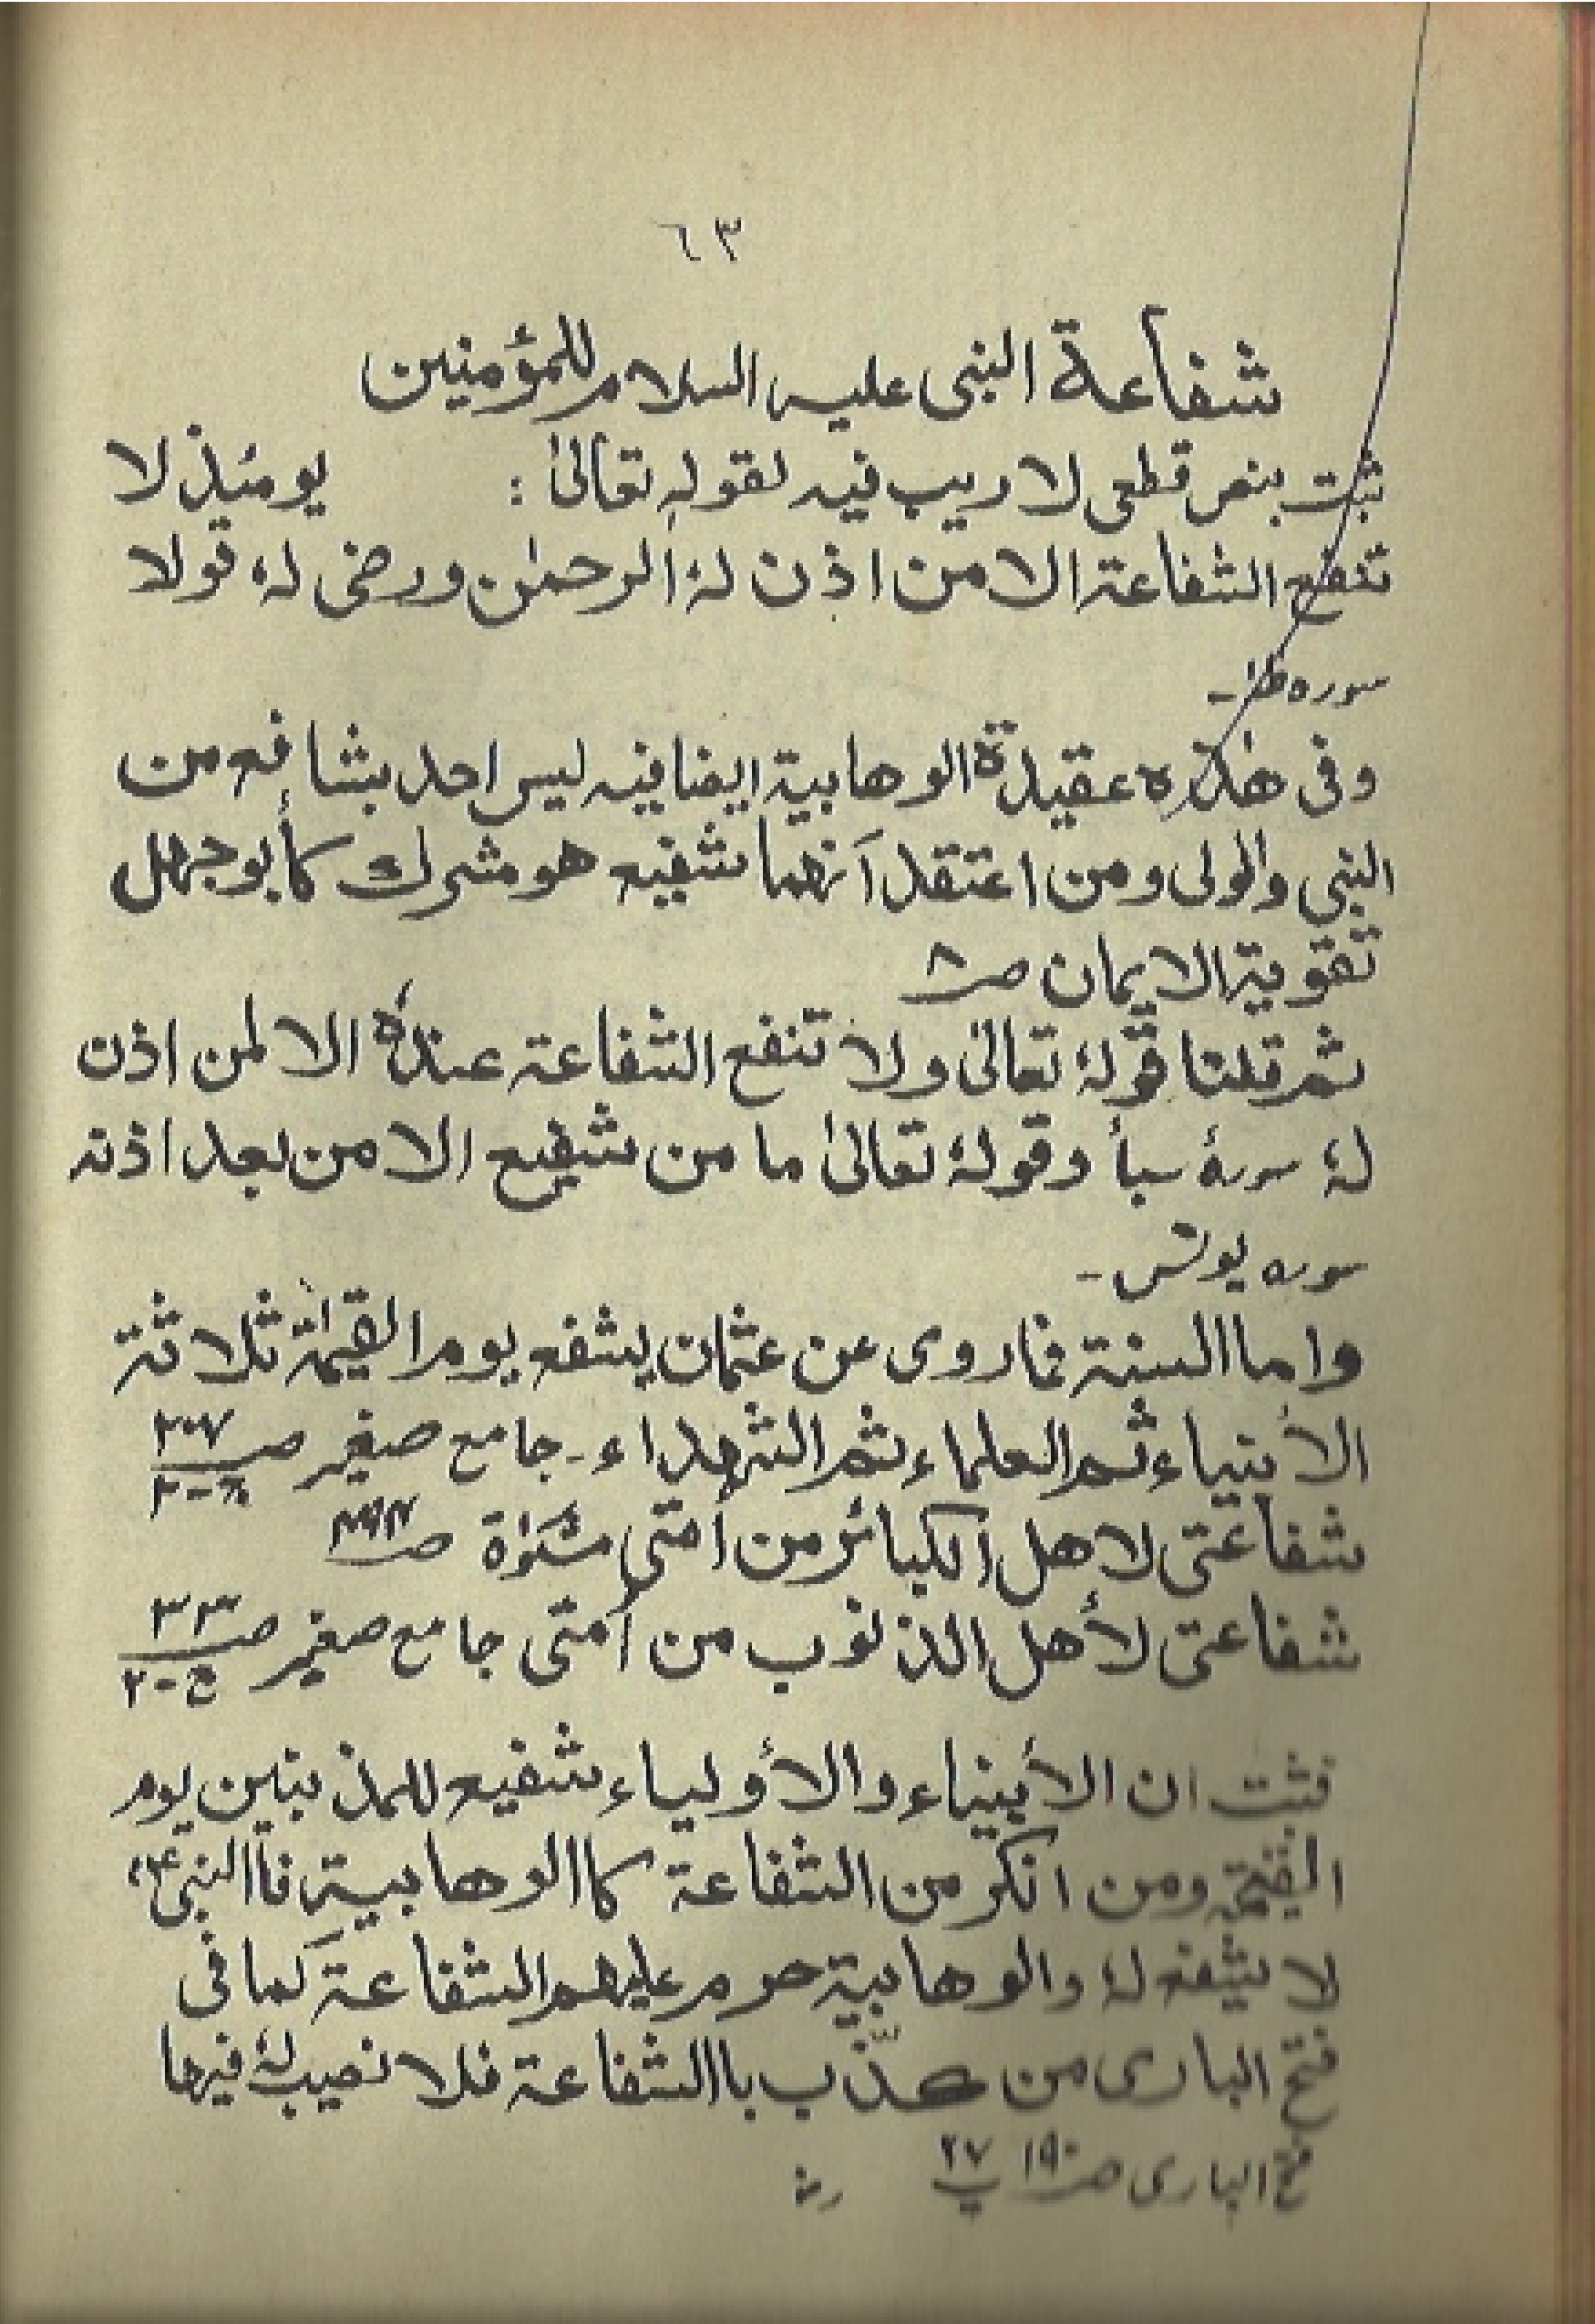 ٦٣
شفاعة النبی علیہ السلام للمؤمنین
ثبت بنص قطعی لا ریب فیہ لقولہ تعالیٰ : یومئذ لا
تنفع الشفاعۃ الا من اذن لہٗ الرحمٰن ورضی لہٗ قولا
سورہ طٰہٰ -
وفی ھٰذہ عقیدۃ الوھابیۃ ایضا فیہ لیس احد بشافع من
النبی والولی ومن اعتقد أنھما شفیع ھو مشرک کأبوجھل
تقویۃ الایمان صـ ٨
ثم قلنا قولہٗ تعالیٰ ولا تنفع الشفاعۃ عندہٗ الا لمن اذن
لہٗ سورۂ سبأ وقولہٗ تعالیٰ ما من شفیع الا من بعد اذنہ
سورہ یونس -
واما السنۃ فما روی عن عثمان یشفع یوم القیٰمۃ ثلاثۃ
الأنبیاء ثم العلماء ثم الشھداء - جامع صغیر صـ
شفاعتی لاھل الکبائر من أمتی مشکوٰۃ صـ
شفاعتی لأھل الذنوب من أمتی جامع صغیر صـ ٣٣ ج - ٢
فثبت ان الأنبیاء والأولیاء شفیع للمذنبین یوم
القیٰمۃ ومن انکر من الشفاعۃ کما الوھابیۃ فاالنبی ؑ
لا یشفع لہٗ والوھابیۃ حرم علیھم الشفاعۃ کما فی
فتح الباری من کذّب باالشفاعۃ فلا نصیب لہٗ فیھا
فتح الباری صـ ١٩٠ پ ٢٧